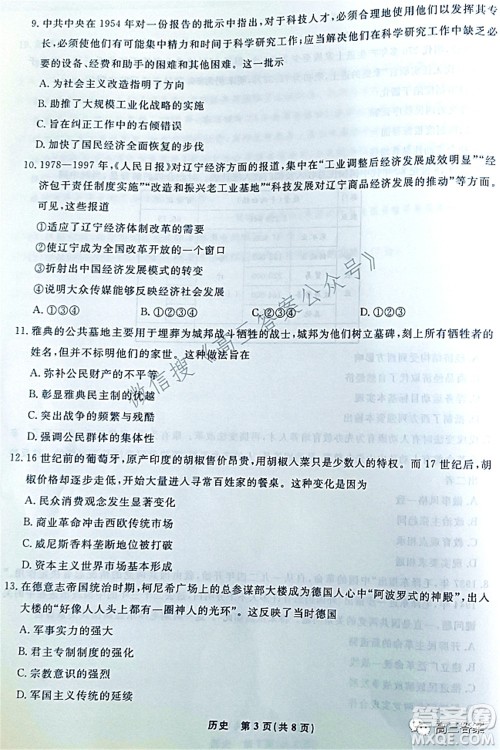 9. 中共中央在 1954 年对一份报告的批示中指出，对于科技人才，必须合理地使用他们以发挥其专
长，必须使他们有可能集中精力和时间于科学研究工作；应当解决他们在科学研究工作中缺乏必
要的设备、经费和助手的困难和其他困难。这一批示
A. 为社会主义改造指明了方向
B. 助推了大规模工业化战略的实施
C. 旨在纠正工作中的右倾错误
D. 加快了国民经济全面恢复的步伐
10. 1978—1997 年，《人民日报》对辽宁经济方面的报道，集中在“工业调整后经济发展成效明显”“经
济包干责任制度实施”“改造和振兴老工业基地”“科技发展对辽宁商品经济发展的推动”等方面。
可见，这些报道
①适应了辽宁经济体制改革的需要
②使辽宁成为全国改革开放的一个窗口
③折射出中国经济发展模式的转变
④说明大众传媒能够反映经济社会发展
A. ①②④ B. ①③④ C. ②③④ D. ①②③
11. 雅典的公共墓地主要用于埋葬为城邦战斗牺牲的战士，城邦为他们树立墓碑，刻上所有牺牲者的
姓名，但并不标明他们的家世背景。这种做法旨在
A. 弥补公民财产的不平等
B. 彰显雅典民主制的优越
C. 突出战争的频繁与残酷
D. 强调公民群体的集体性
12. 16 世纪前的葡萄牙，原产印度的胡椒售价昂贵，用胡椒入菜只是少数人的特权。而 17 世纪后，胡
椒价格却逐步走低，开始大量进入寻常百姓家的餐桌。这一变化
A. 民众消费观念发生显著变化
B. 商业革命冲击西欧传统市场
C. 威尼斯香料垄断地位被打破
D. 资本主义世界市场基本形成
13. 在德意志帝国统治时期，柯尼希广场上的总参谋部大楼成为德国人心中“阿波罗式的神殿”，出入
大楼的“好像人人头上都有一圈神人的光环”。这反映了当时德国
A. 军事实力的强大
B. 君主专制制度的强化
C. 宗教意识的强烈
D. 军国主义传统的延续
历史 第 3 页(共 8 页)
微信搜《高三答案公众号》
高三答案